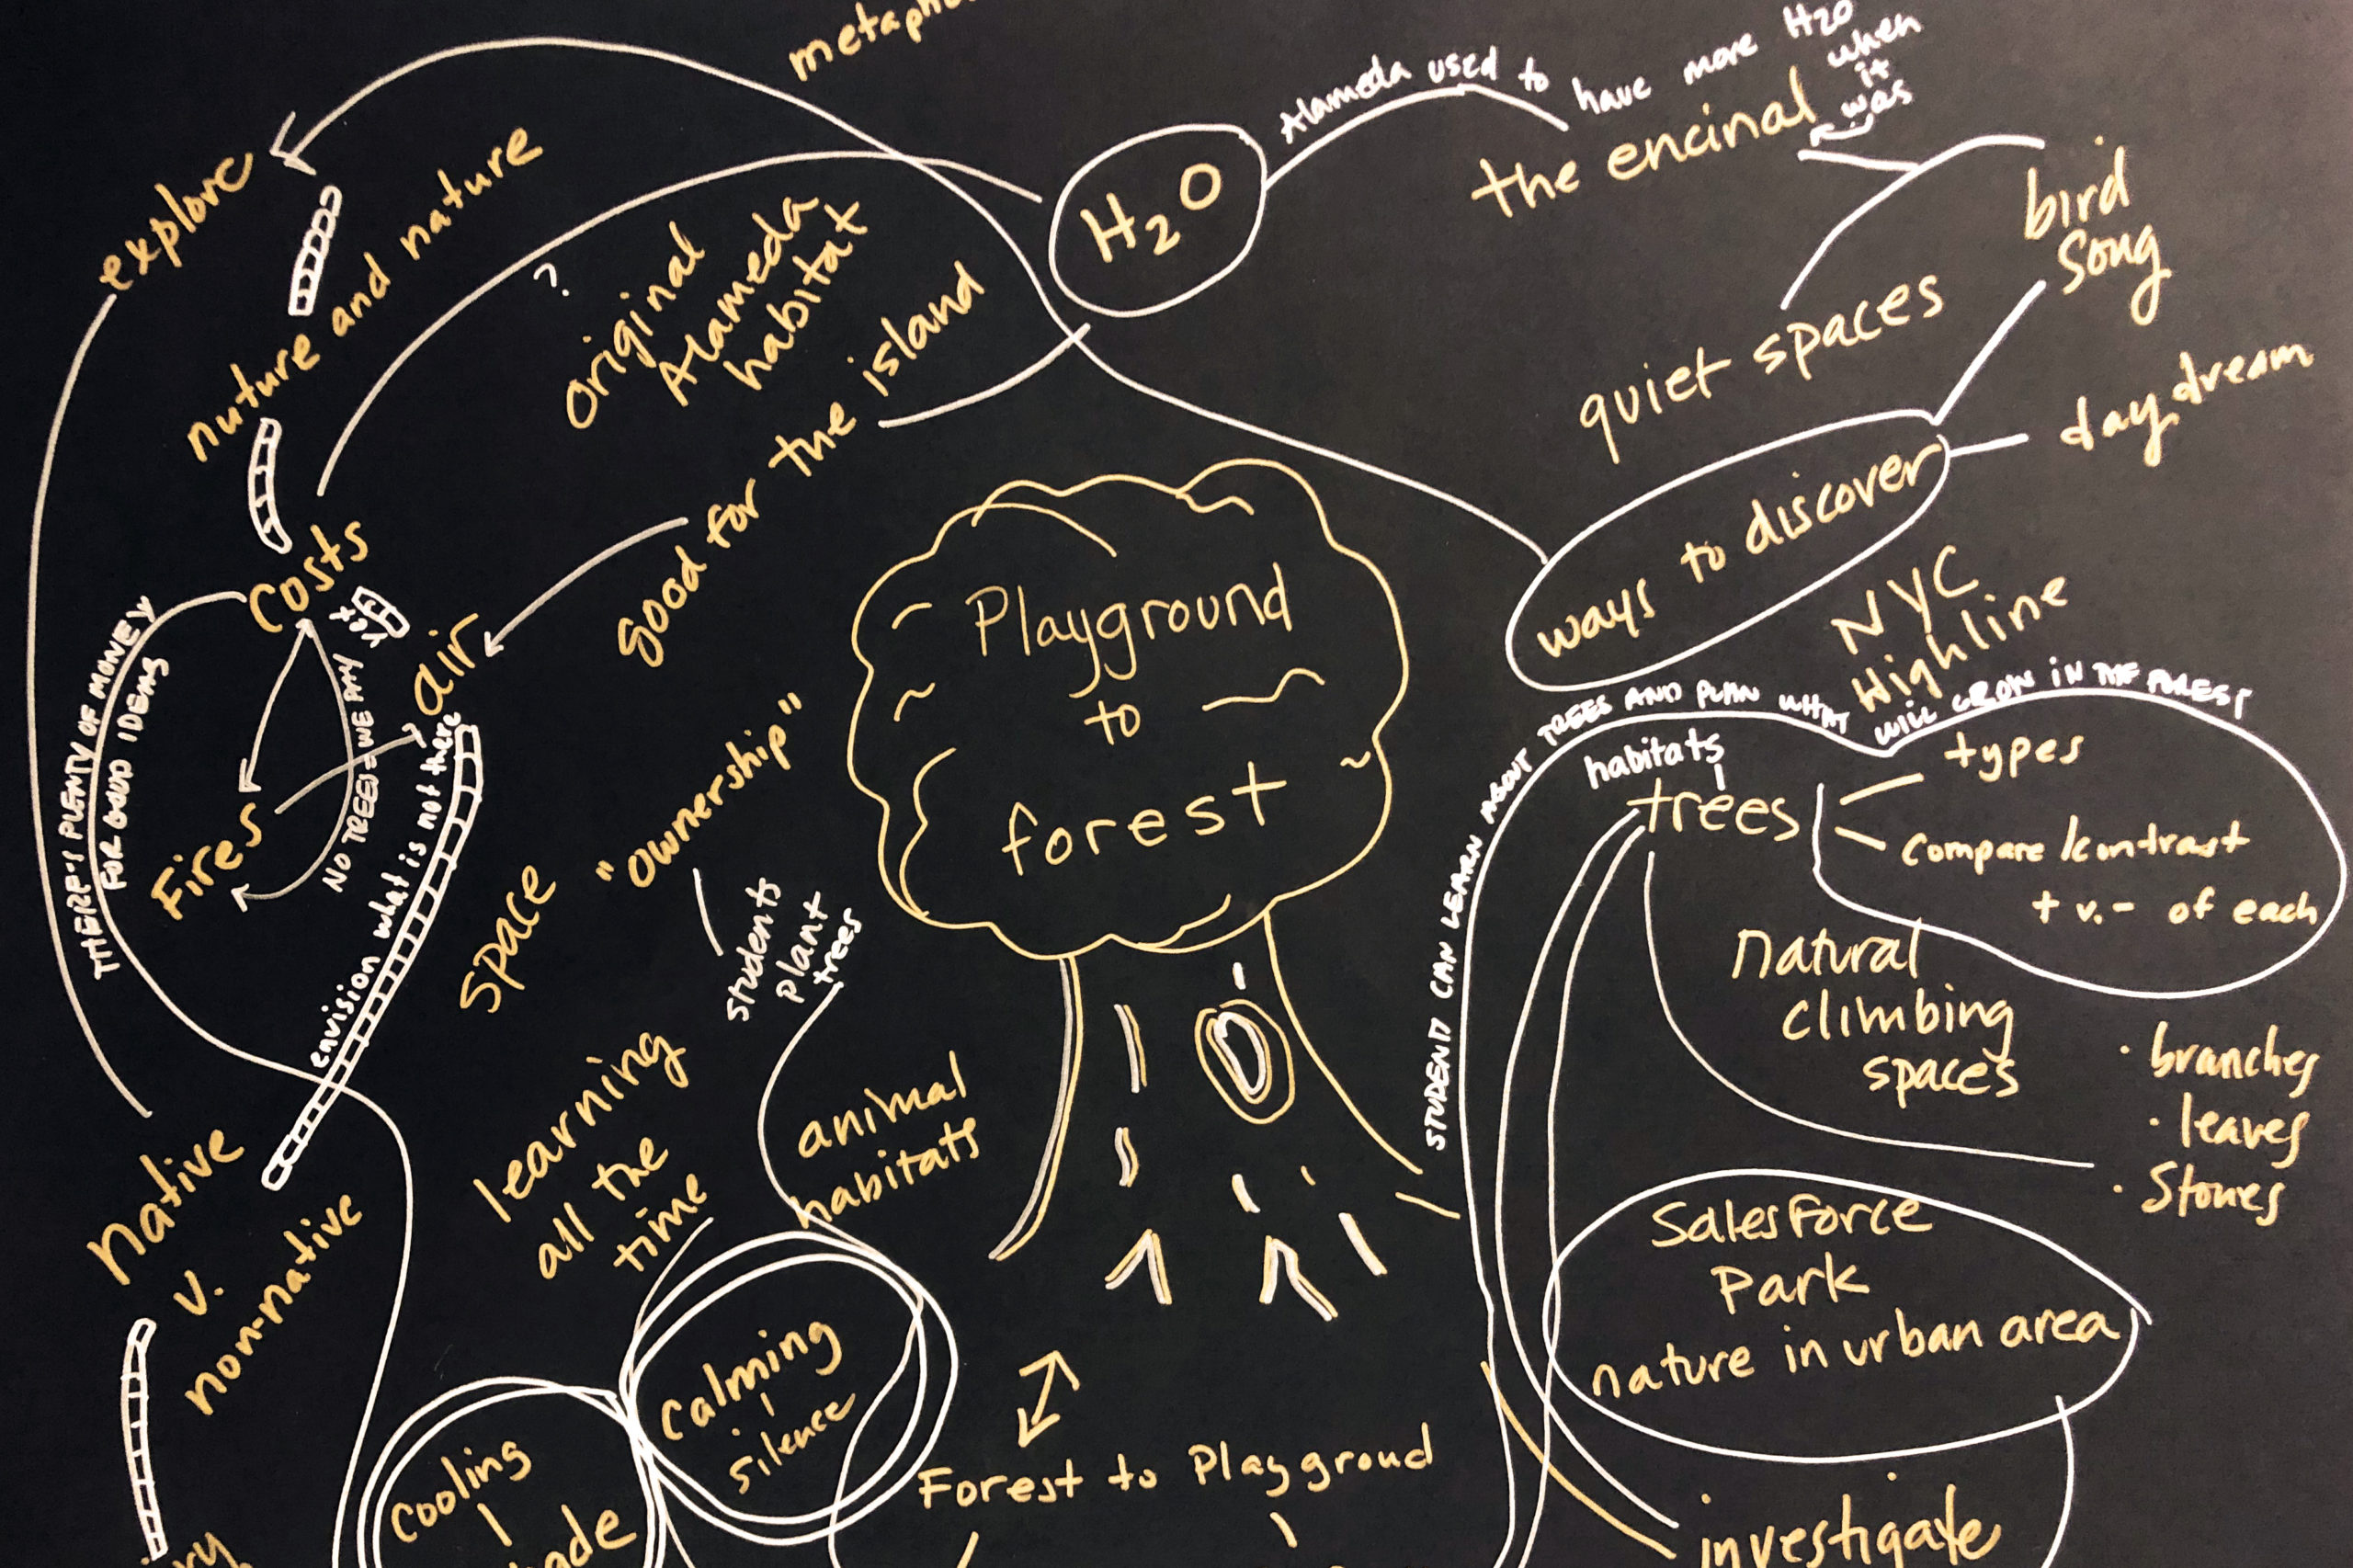 Alameda used to have more H2O
when
it
was
the encinal
explore
nuture and nature
H2O
bird
song
original
Alameda
habitat
good for the island
quiet spaces
day dream
ways to discover
Costs
air
NYC
Highline
THERE'S PLENTY OF MONEY
FOR GOOD IDEAS
NO TREES = WE PAY
Fires
envision what is not there
Playground
to
forest
space "ownership"
students
plant
trees
STUDENTS CAN LEARN ABOUT TREES AND PLAN WHAT WILL GROW IN THE FOREST
habitats
trees
types
compare/contrast
+ v. - of each
natural
climbing
spaces
· branches
· leaves
· Stones
learning
all the
time
animal
habitats
native
v.
non-native
Salesforce
Park
nature in urban area
Calming
silence
Cooling
Forest to Playgroud
investigate